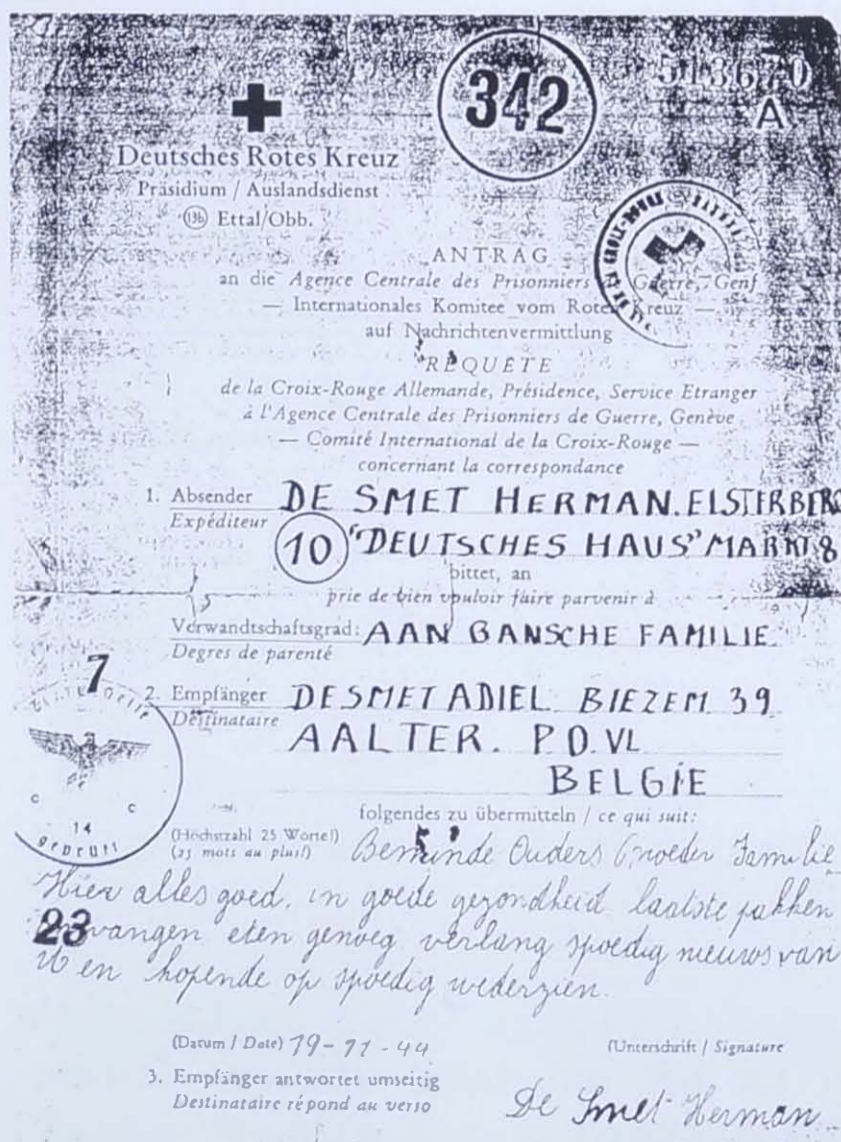 342
513670
A
Deutsches Rotes Kreuz
Präsidium / Auslandsdienst
13b Ettal/Obb.
ANTRAG
an die Agence Centrale des Prisonniers Guerre, Genf
— Internationales Komitee vom Roten Kreuz —
auf Nachrichtenvermittlung
REQUÊTE
de la Croix-Rouge Allemande, Présidence, Service Etranger
à l'Agence Centrale des Prisonniers de Guerre, Genève
— Comité International de la Croix-Rouge —
concernant la correspondance
1. Absender DE SMET HERMAN. ELSTERBERG
Expéditeur
10 "DEUTSCHES HAUS" MARKT 8
bittet, an
prie de bien vouloir faire parvenir à
Verwandtschaftsgrad: AAN GANSCHE FAMILIE
Degres de parenté
7
2. Empfänger DE SMET ADIEL BIEZEM 39
Destinataire
AALTER. P.O. VL
BELGIE
14
geprüft
folgendes zu übermitteln / ce qui suit:
(Höchstzahl 25 Worte!)
(25 mots au plus!) Beminde Ouders Broeder Familie
Hier alles goed, in goede gezondheid laatste pakken
23 eten genoeg verlang spoedig nieuws van
U en hopende op spoedig wederzien.
(Datum / Date) 19-11-44
(Unterschrift / Signature
3. Empfänger antwortet umseitig
Destinataire répond au verso
De Smet Herman